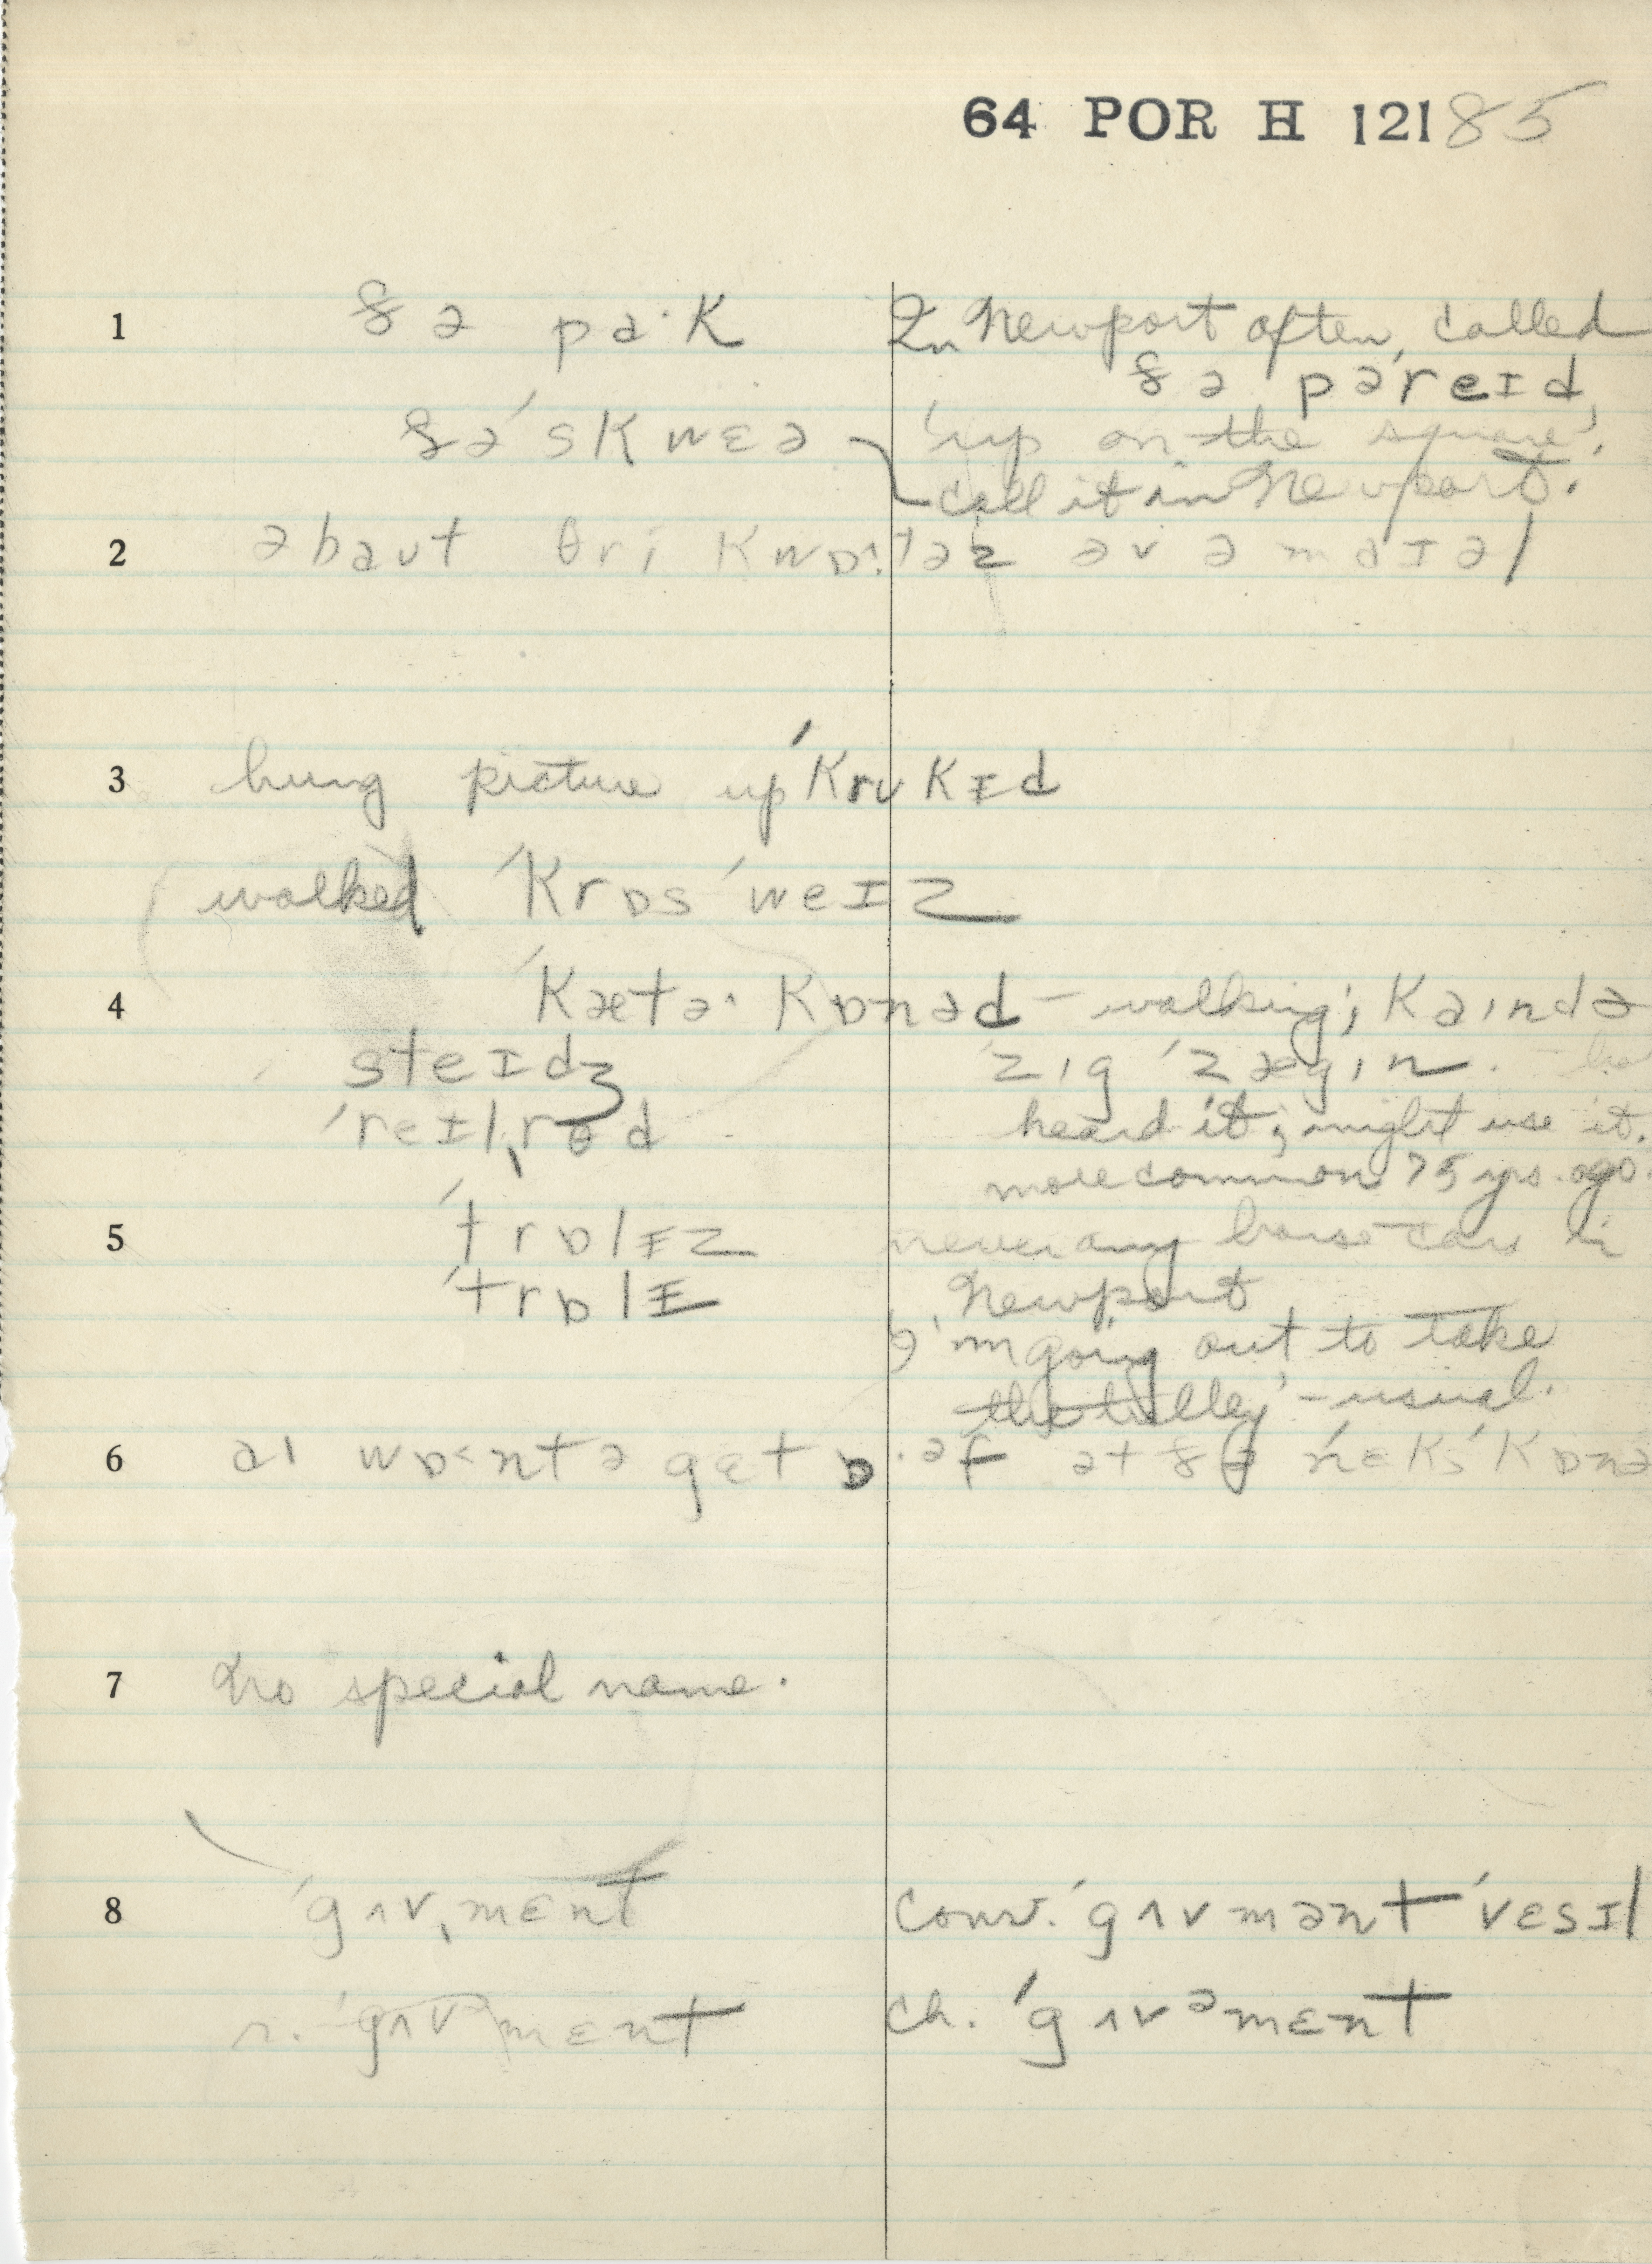 64 POR H 12185
1 ðə pa·k In Newport often called
ðə pə'reɪd,
ðə 'skwɛə 'up on the square',
call it in Newport.
2 əbaut θri kwɒ˂·təz əv ə maɪəl
3 hung picture up 'krukɪd
walked 'krɒs 'weɪz
4 'kætə· kɒnəd – walking; kaɪndə
steɪdʒ zɪg 'zægɪn.
'reɪlˌrɵd heard it; might use it.
more common 75 yrs. ago.
5 'trɒlɪz never any horse-cars in
'trɒlɪ Newport
I'm going out to take
the trolley' – usual.
6 aɪ wɒ˂nt ə gɛt ɒ·əf ət ðə 'nɛks 'kɒnə
7 No special name.
8 'gʌvˌmɛnt conv. 'gʌvmənt 'vɛsɪl
r. 'gʌvmɛnt ch. 'gʌvᵊmɛnt